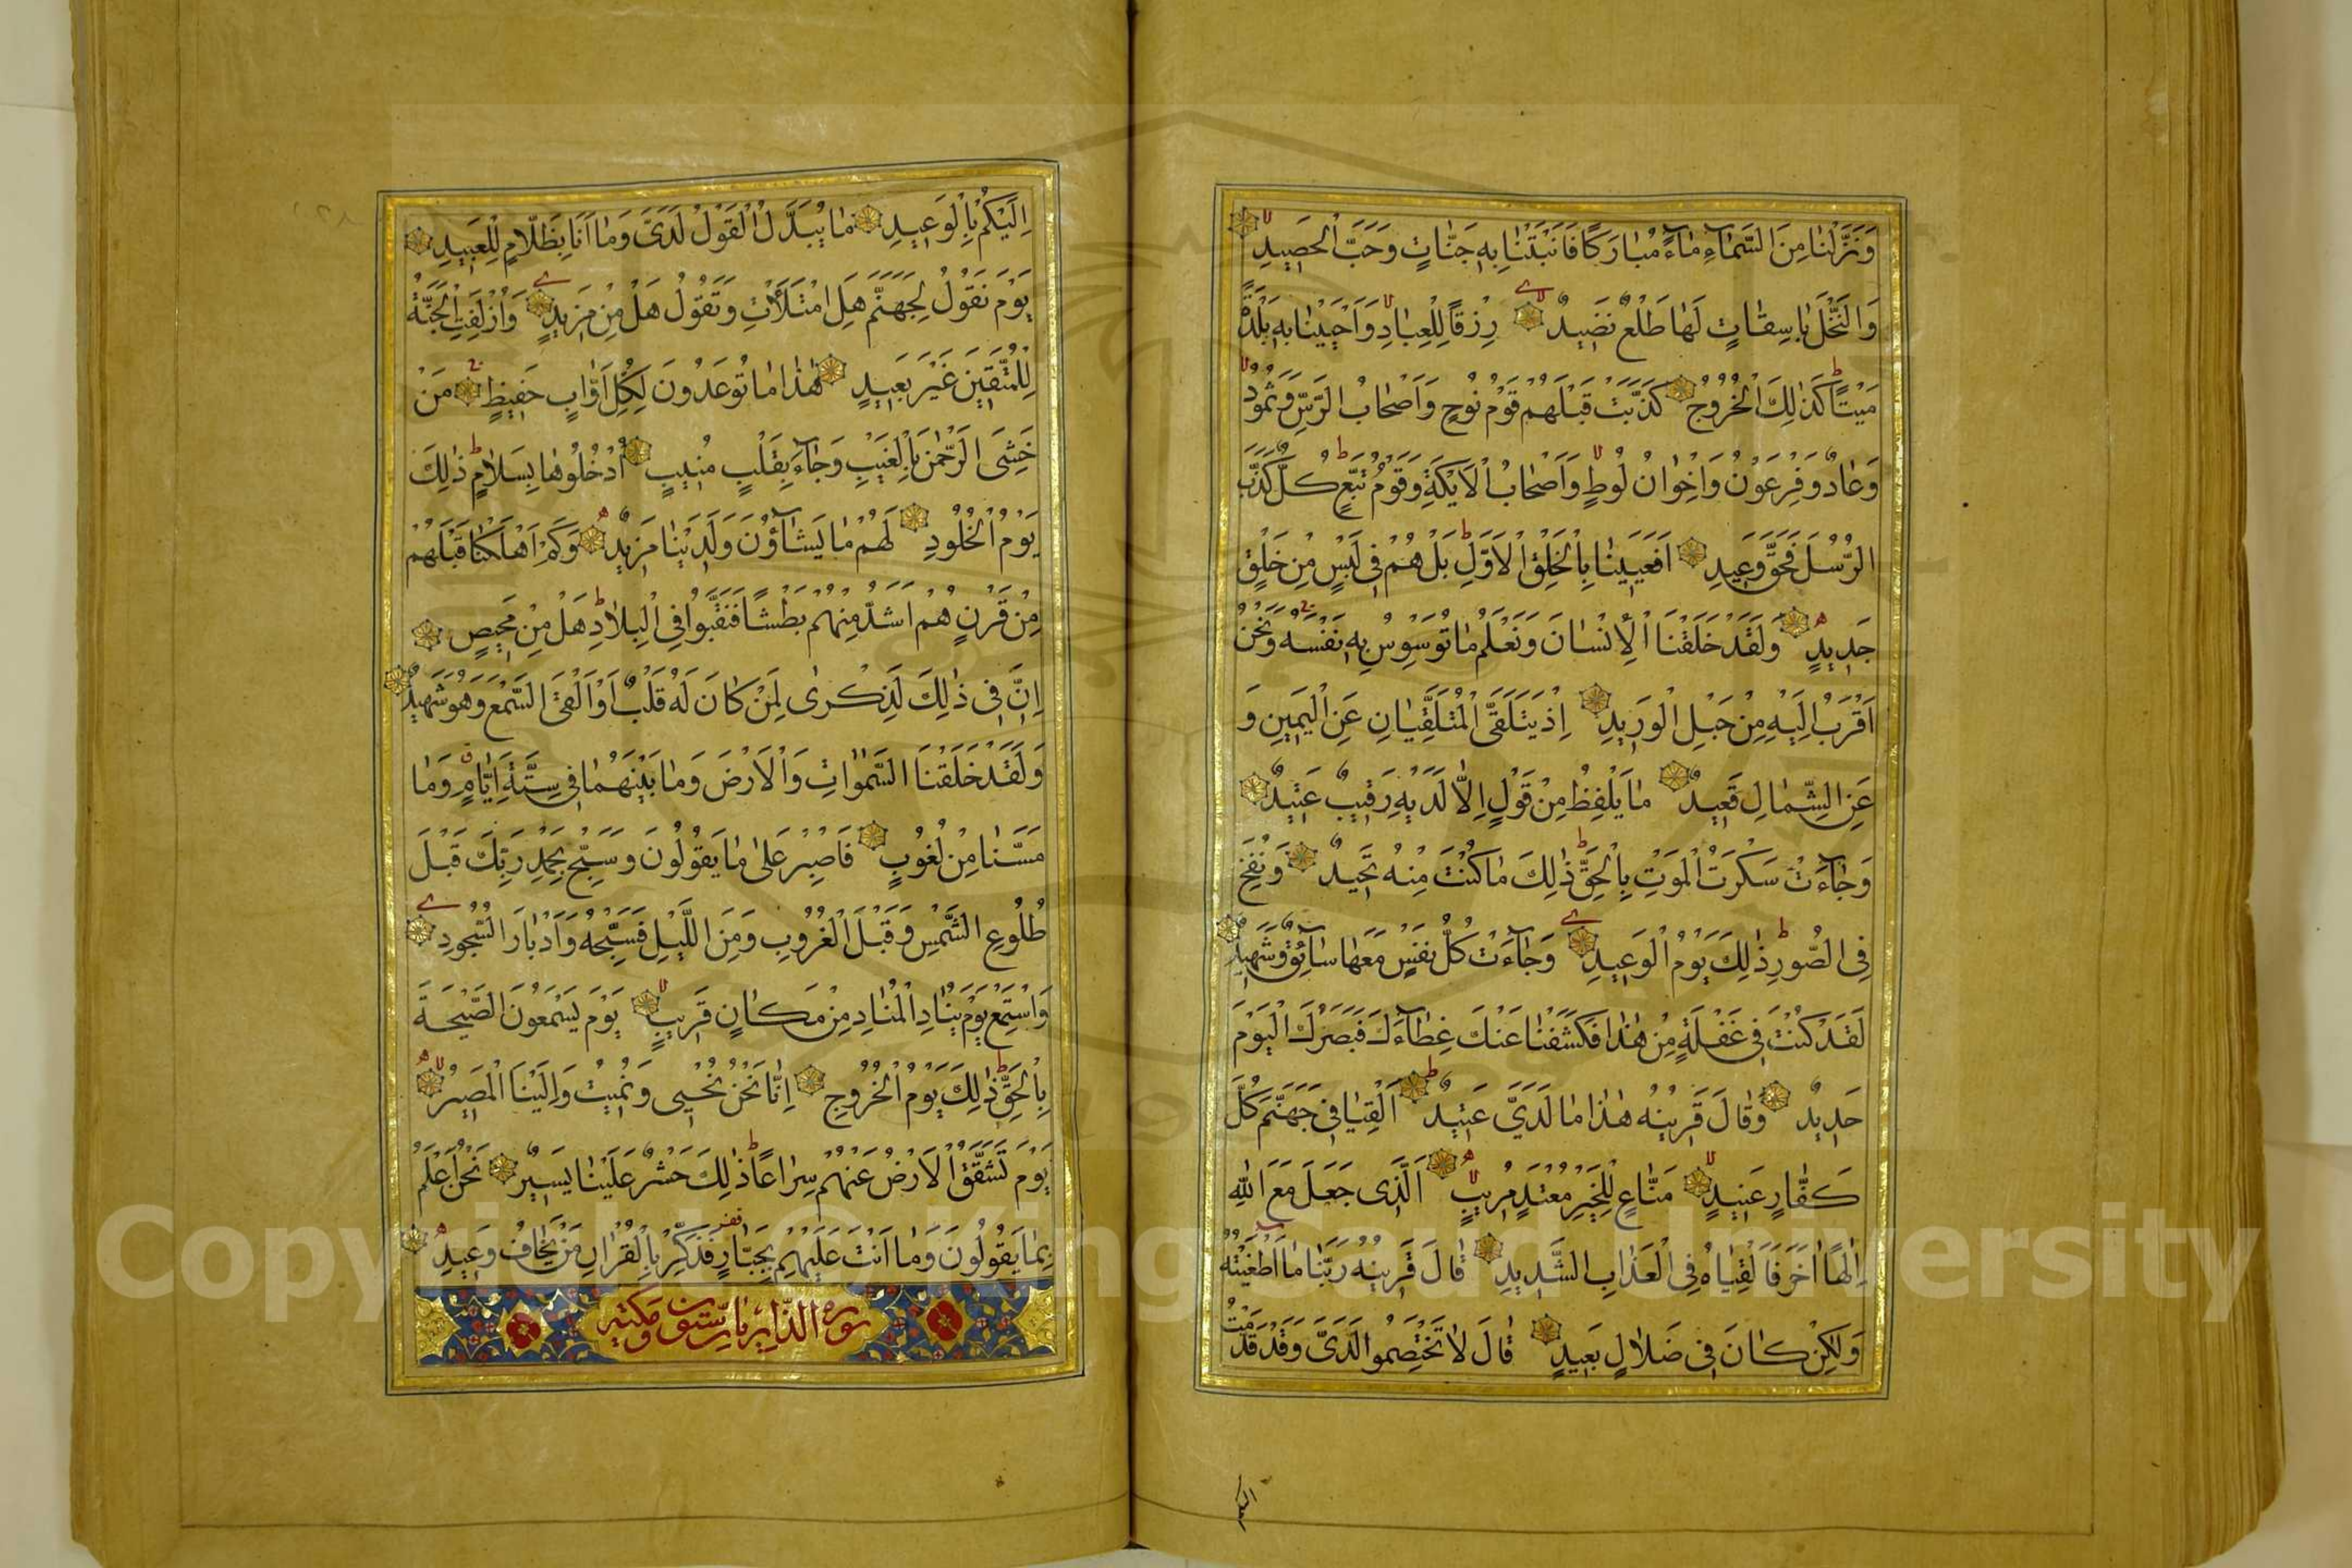 وَنَزَّلْنَا مِنَ السَّمَاءِ مَاءً مُبَارَكًا فَأَنْبَتْنَا بِهِ جَنَّاتٍ وَحَبَّ الْحَصِيدِ
وَالنَّخْلَ بَاسِقَاتٍ لَهَا طَلْعٌ نَضِيدٌ رِزْقًا لِلْعِبَادِ وَاَحْيَيْنَا بِهِ بَلْدَةً
مَيْتًا كَذٰلِكَ الْخُرُوجُ كَذَّبَتْ قَبْلَهُمْ قَوْمُ نُوحٍ وَاَصْحَابُ الرَّسِّ وَثَمُودُ
وَعَادٌ وَفِرْعَوْنُ وَاِخْوَانُ لُوطٍ وَاَصْحَابُ الْاَيْكَةِ وَقَوْمُ تُبَّعٍ كُلٌّ كَذَّبَ
الرُّسُلَ فَحَقَّ وَعِيدِ اَفَعَيِينَا بِالْخَلْقِ الْاَوَّلِ بَلْ هُمْ فِي لَبْسٍ مِنْ خَلْقٍ
جَدِيدٍ وَلَقَدْ خَلَقْنَا الْاِنْسَانَ وَنَعْلَمُ مَا تُوَسْوِسُ بِهِ نَفْسُهُ وَنَحْنُ
اَقْرَبُ اِلَيْهِ مِنْ حَبْلِ الْوَرِيدِ اِذْ يَتَلَقَّى الْمُتَلَقِّيَانِ عَنِ الْيَمِينِ وَ
عَنِ الشِّمَالِ قَعِيدٌ مَا يَلْفِظُ مِنْ قَوْلٍ اِلَّا لَدَيْهِ رَقِيبٌ عَتِيدٌ
وَجَاءَتْ سَكْرَتُ الْمَوْتِ بِالْحَقِّ ذٰلِكَ مَا كُنْتَ مِنْهُ تَحِيدُ وَنُفِخَ
فِي الصُّورِ ذٰلِكَ يَوْمُ الْوَعِيدِ وَجَاءَتْ كُلُّ نَفْسٍ مَعَهَا سَائِقٌ وَشَهِيدٌ
لَقَدْ كُنْتَ فِي غَفْلَةٍ مِنْ هٰذَا فَكَشَفْنَا عَنْكَ غِطَاءَكَ فَبَصَرُكَ الْيَوْمَ
حَدِيدٌ وَقَالَ قَرِينُهُ هٰذَا مَا لَدَيَّ عَتِيدٌ اَلْقِيَا فِي جَهَنَّمَ كُلَّ
كَفَّارٍ عَنِيدٍ مَنَّاعٍ لِلْخَيْرِ مُعْتَدٍ مُرِيبٍ اَلَّذِي جَعَلَ مَعَ اللّٰهِ
اِلٰهًا اٰخَرَ فَاَلْقِيَاهُ فِي الْعَذَابِ الشَّدِيدِ قَالَ قَرِينُهُ رَبَّنَا مَا اَطْغَيْتُهُ
وَلٰكِنْ كَانَ فِي ضَلَالٍ بَعِيدٍ قَالَ لَا تَخْتَصِمُوا لَدَيَّ وَقَدْ قَدَّمْتُ
اِلَيْكُمْ بِالْوَعِيدِ مَا يُبَدَّلُ الْقَوْلُ لَدَيَّ وَمَا اَنَا بِظَلَّامٍ لِلْعَبِيدِ
يَوْمَ نَقُولُ لِجَهَنَّمَ هَلِ امْتَلَأْتِ وَتَقُولُ هَلْ مِنْ مَزِيدٍ وَاُزْلِفَتِ الْجَنَّةُ
لِلْمُتَّقِينَ غَيْرَ بَعِيدٍ هٰذَا مَا تُوعَدُونَ لِكُلِّ اَوَّابٍ حَفِيظٍ مَنْ
خَشِيَ الرَّحْمٰنَ بِالْغَيْبِ وَجَاءَ بِقَلْبٍ مُنِيبٍ اُدْخُلُوهَا بِسَلَامٍ ذٰلِكَ
يَوْمُ الْخُلُودِ لَهُمْ مَا يَشَاؤُنَ وَلَدَيْنَا مَزِيدٌ وَكَمْ اَهْلَكْنَا قَبْلَهُمْ
مِنْ قَرْنٍ هُمْ اَشَدُّ مِنْهُمْ بَطْشًا فَنَقَّبُوا فِي الْبِلَادِ هَلْ مِنْ مَحِيصٍ
اِنَّ فِي ذٰلِكَ لَذِكْرٰى لِمَنْ كَانَ لَهُ قَلْبٌ اَوْ اَلْقَى السَّمْعَ وَهُوَ شَهِيدٌ
وَلَقَدْ خَلَقْنَا السَّمٰوَاتِ وَالْاَرْضَ وَمَا بَيْنَهُمَا فِي سِتَّةِ اَيَّامٍ وَمَا
مَسَّنَا مِنْ لُغُوبٍ فَاصْبِرْ عَلٰى مَا يَقُولُونَ وَسَبِّحْ بِحَمْدِ رَبِّكَ قَبْلَ
طُلُوعِ الشَّمْسِ وَقَبْلَ الْغُرُوبِ وَمِنَ اللَّيْلِ فَسَبِّحْهُ وَاَدْبَارَ السُّجُودِ
وَاسْتَمِعْ يَوْمَ يُنَادِ الْمُنَادِ مِنْ مَكَانٍ قَرِيبٍ يَوْمَ يَسْمَعُونَ الصَّيْحَةَ
بِالْحَقِّ ذٰلِكَ يَوْمُ الْخُرُوجِ اِنَّا نَحْنُ نُحْيِي وَنُمِيتُ وَاِلَيْنَا الْمَصِيرُ
يَوْمَ تَشَقَّقُ الْاَرْضُ عَنْهُمْ سِرَاعًا ذٰلِكَ حَشْرٌ عَلَيْنَا يَسِيرٌ نَحْنُ اَعْلَمُ
بِمَا يَقُولُونَ وَمَا اَنْتَ عَلَيْهِمْ بِجَبَّارٍ فَذَكِّرْ بِالْقُرْاٰنِ مَنْ يَخَافُ وَعِيدِ
سورة الذاريات ستون مكية
Copyright © King Saud University